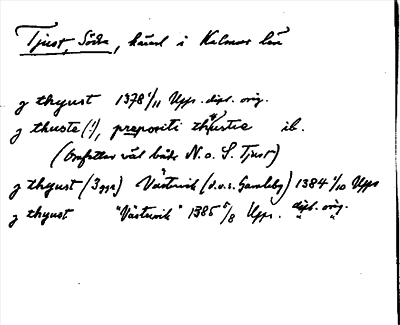 Tjust, Södra, härad i Kalmar län
j thyust 1378 1/11 Upps. dipl. orig.
j thuste (!), prepositi thiustie ib.
(Omfattar väl både N. o. S. Tjust)
j thyust (3 ggr) Västervik (d.v.s. Gamleby) 1384 1/10 Upps
j thyust "Västervik" 1385 5/8 Upps. dipl. orig.